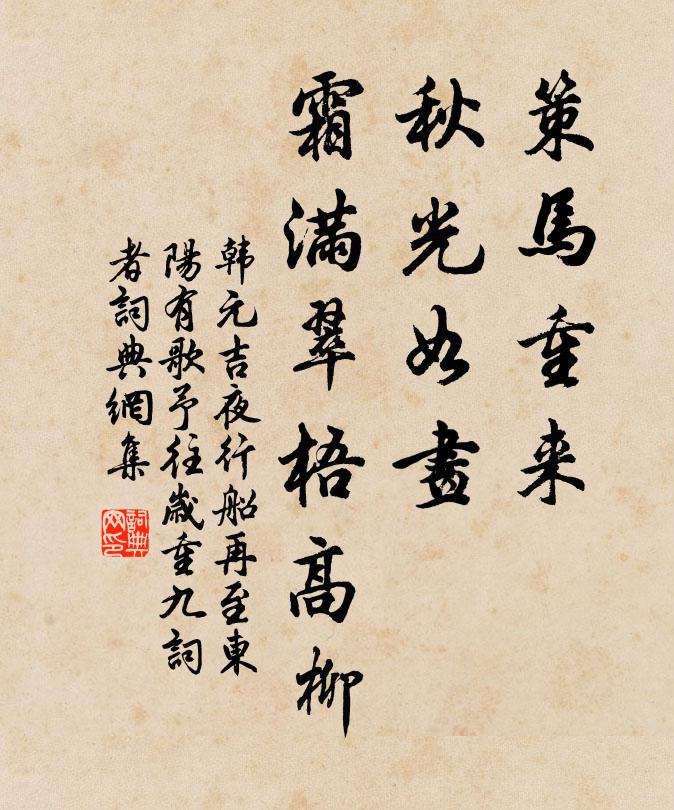 策馬重来
秋光如畫
霜滿翠梧高柳
韩元吉夜行船再至東
陽有歌予往歲重九詞
者詞典網集
詞典網印